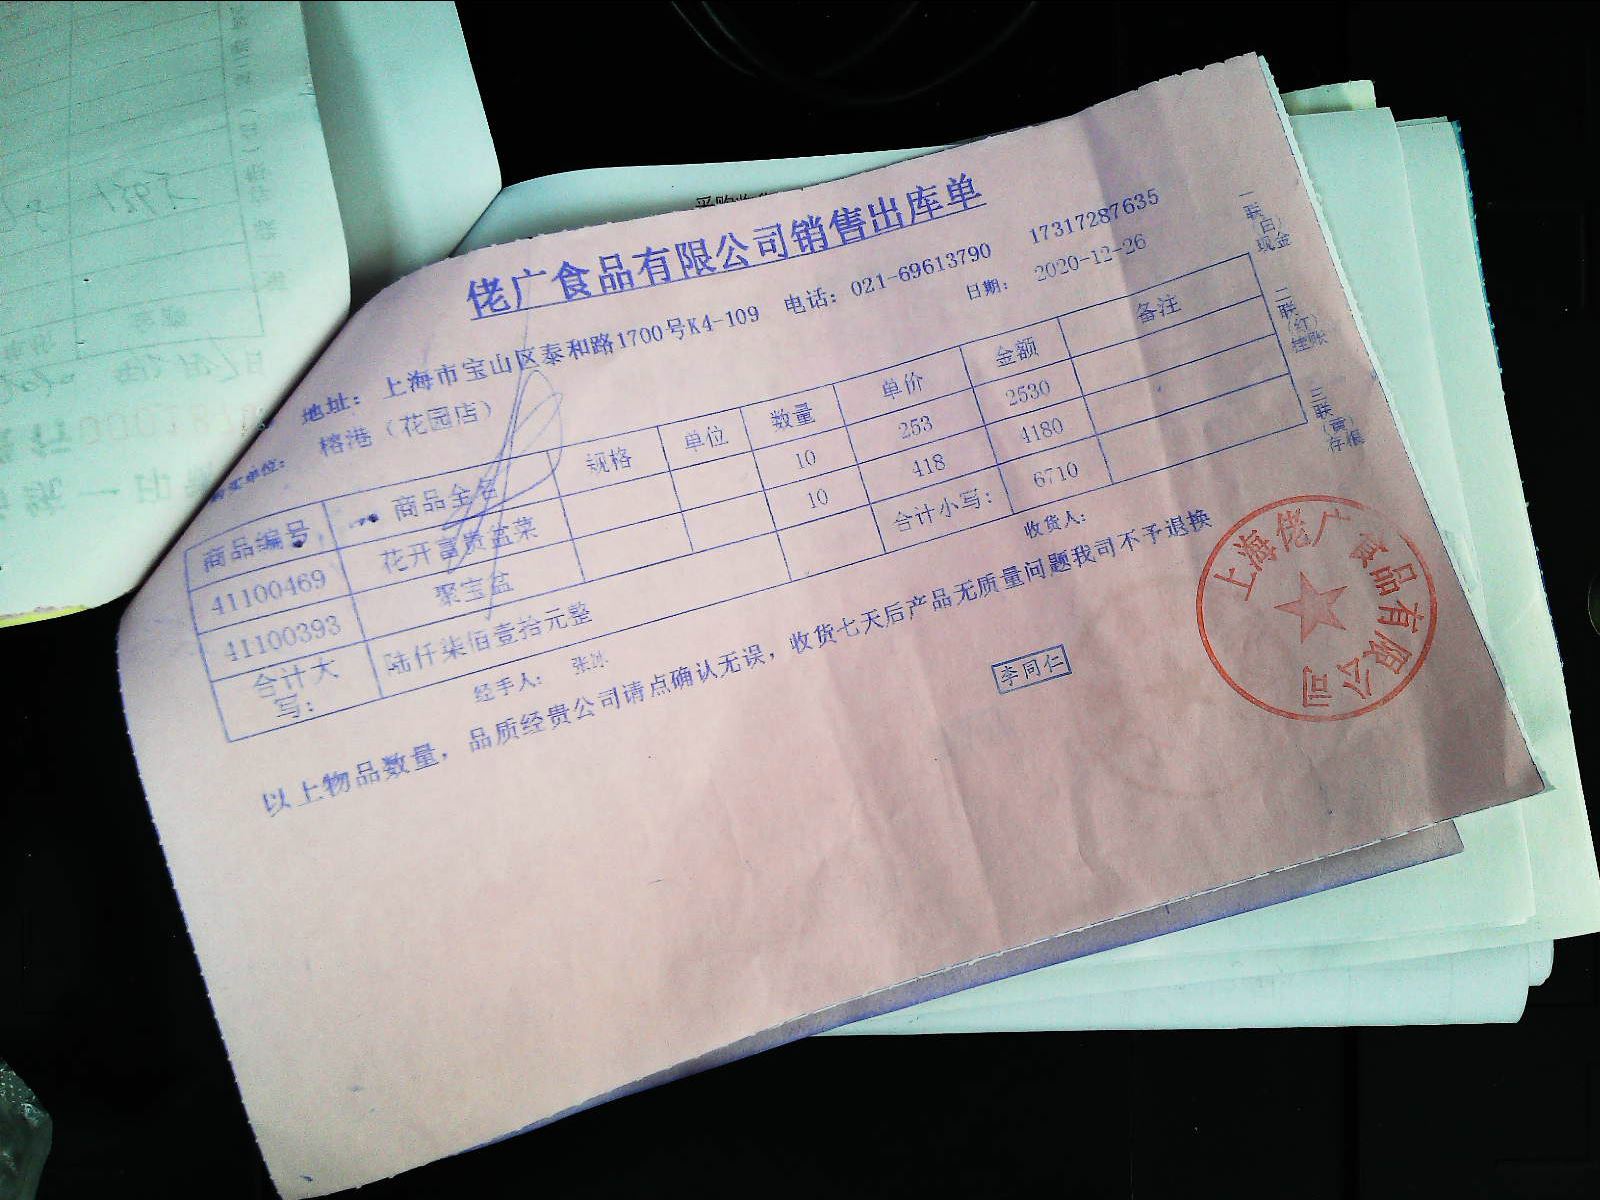 佬广食品有限公司销售出库单
地址: 上海市宝山区泰和路1700号K4-109 电话: 021-69613790 17317287635
榕港（花园店） 日期: 2020-12-26
商品编号 商品全名 规格 单位 数量 单价 金额 备注
41100469 花开富贵盆菜 10 253 2530
41100393 聚宝盆 10 418 4180
合计大写: 陆仟柒佰壹拾元整 合计小写: 6710
经手人: 张冰 收货人:
以上物品数量，品质经贵公司请点确认无误，收货七天后产品无质量问题我司不予退换
李同仁
上海佬广食品有限公司
一联(白)现金
二联(红)挂账
三联(黄)存根